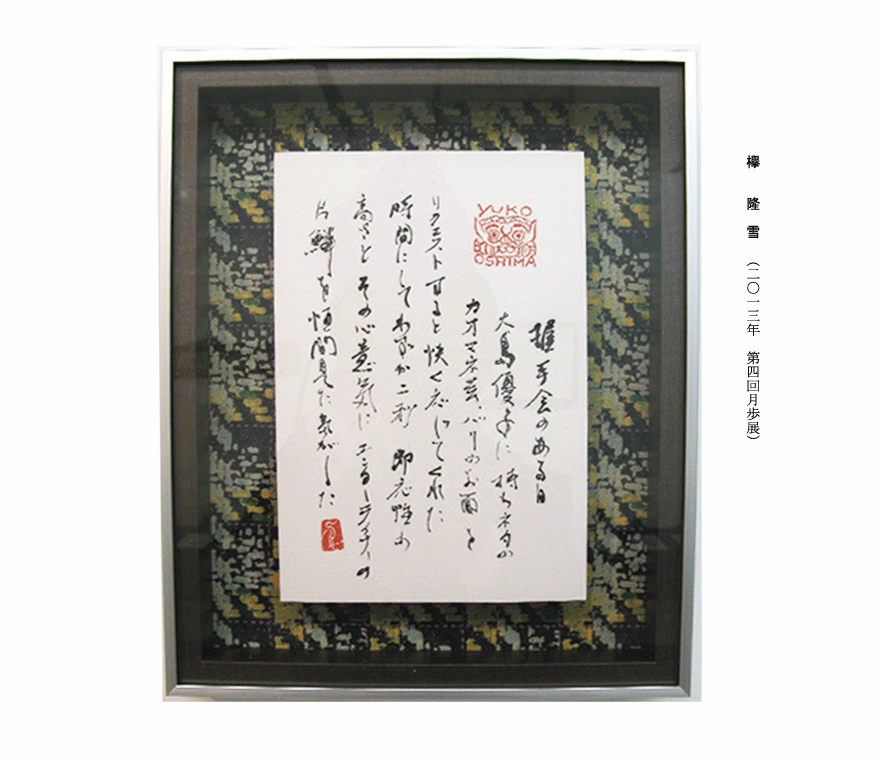 欅　隆雪　（二〇一三年　第四回月歩展）
YUKO
OSHIMA
握手会のある日
大島優子に持ちネタの
カオマネ芸、バリのお面を
リクエストすると快く応じてくれた
時間にしてわずか二秒　即応性の
高さとその心意気にエンターテナーの
片鱗を垣間見た気がした